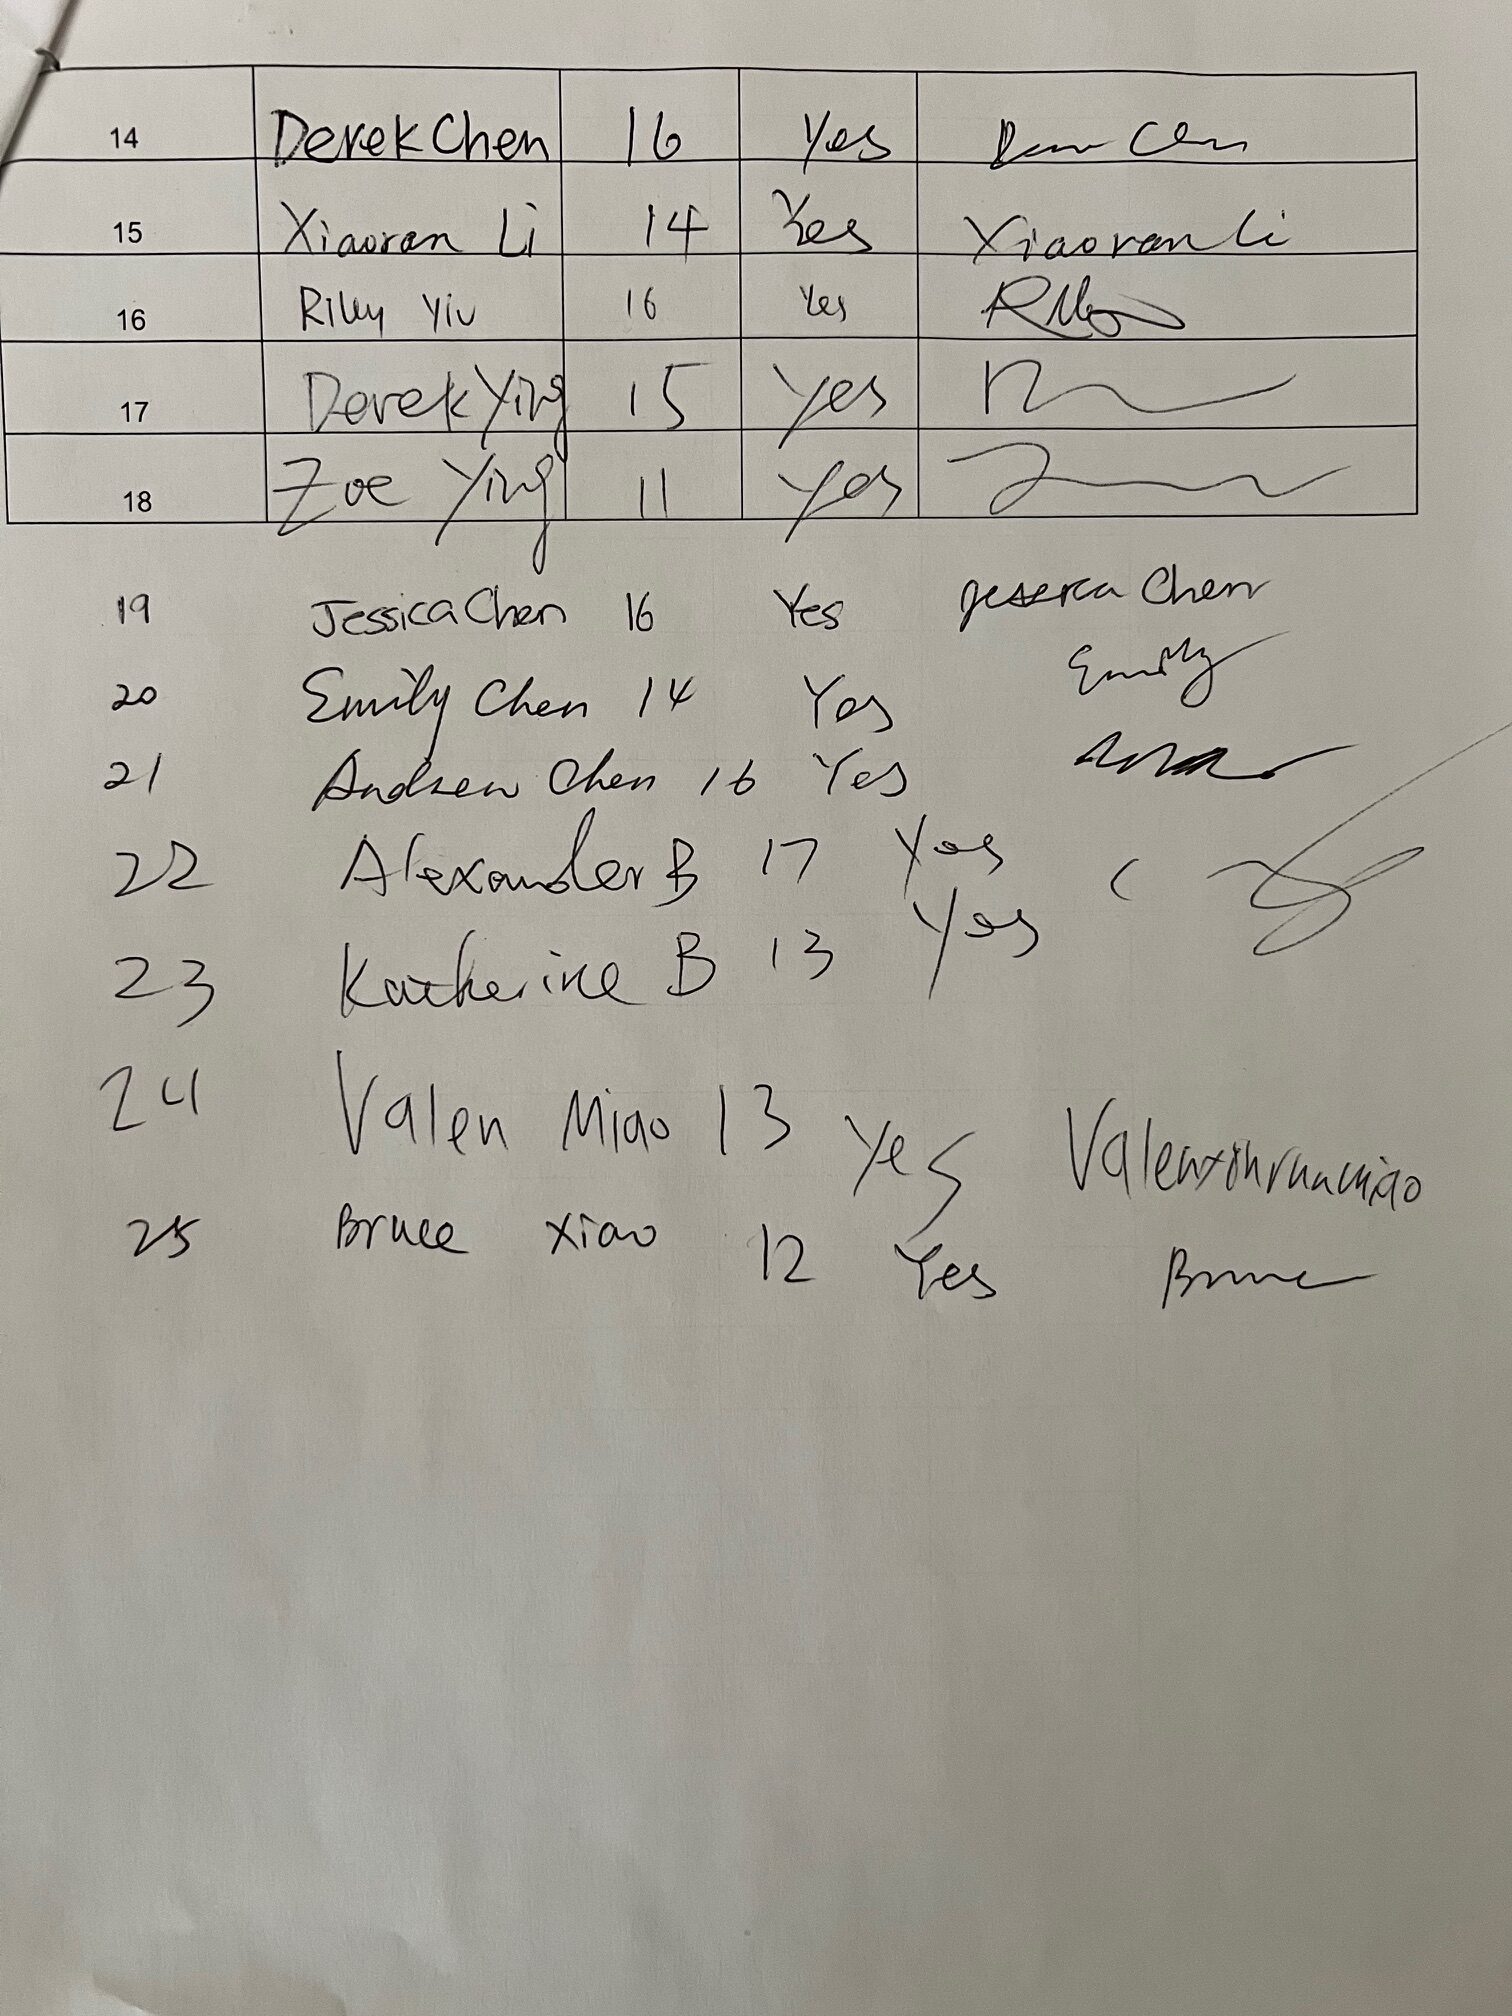 14 Derek Chen 16 Yes
15 Xiaoran Li 14 Yes Xiaoran Li
16 Riley Yiu 16 Yes Riley
17 Derek Ying 15 Yes
18 Zoe Ying 11 Yes
19 Jessica Chen 16 Yes Jessica Chen
20 Emily Chen 14 Yes Emily
21 Andrew Chen 16 Yes
22 Alexander B 17 Yes
23 Katherine B 13 Yes
24 Valen Miao 13 Yes
25 Bruce Xiao 12 Yes Bruce